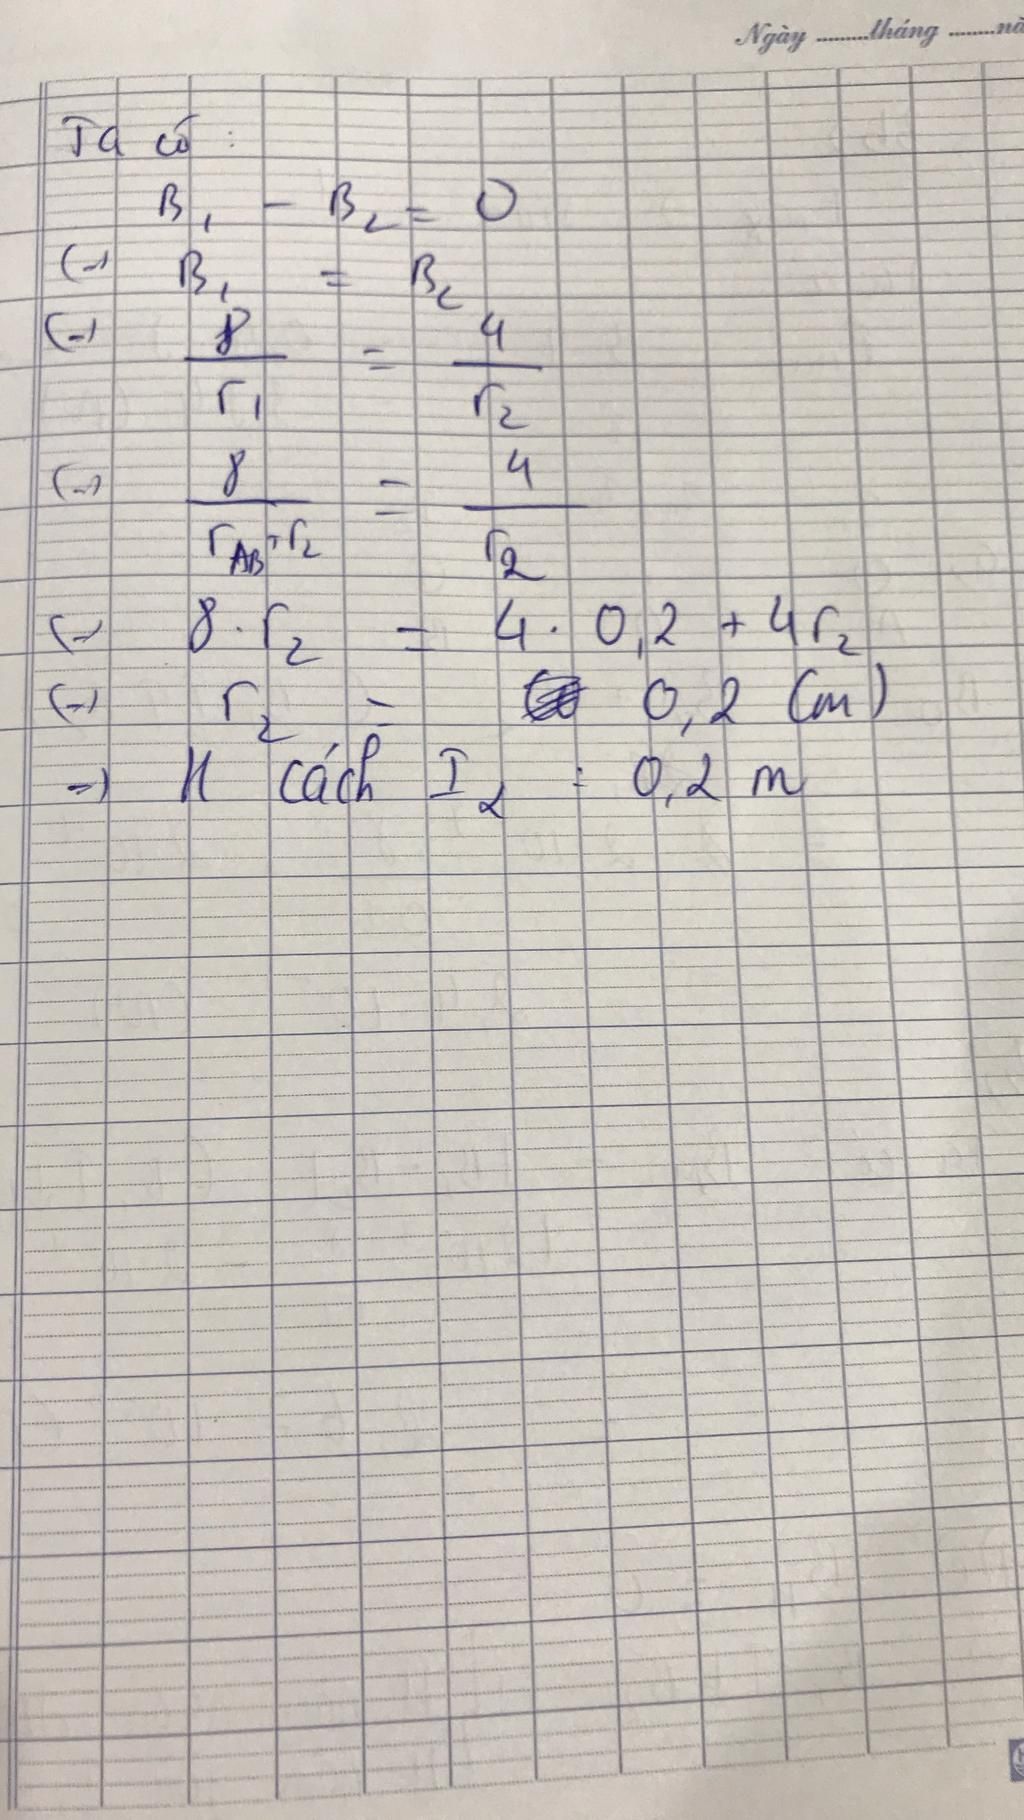 Ngày .........tháng ........nă
Ta có :
B₁ - B₂ = 0
(-) B₁ = B₂
(-) 8/r₁ = 4/r₂
(-) 8/(r_AB + r₂) = 4/r₂
(-) 8 . r₂ = 4 . 0,2 + 4r₂
(-) r₂ = 0,2 (m)
-) N cách I₂ : 0,2 m